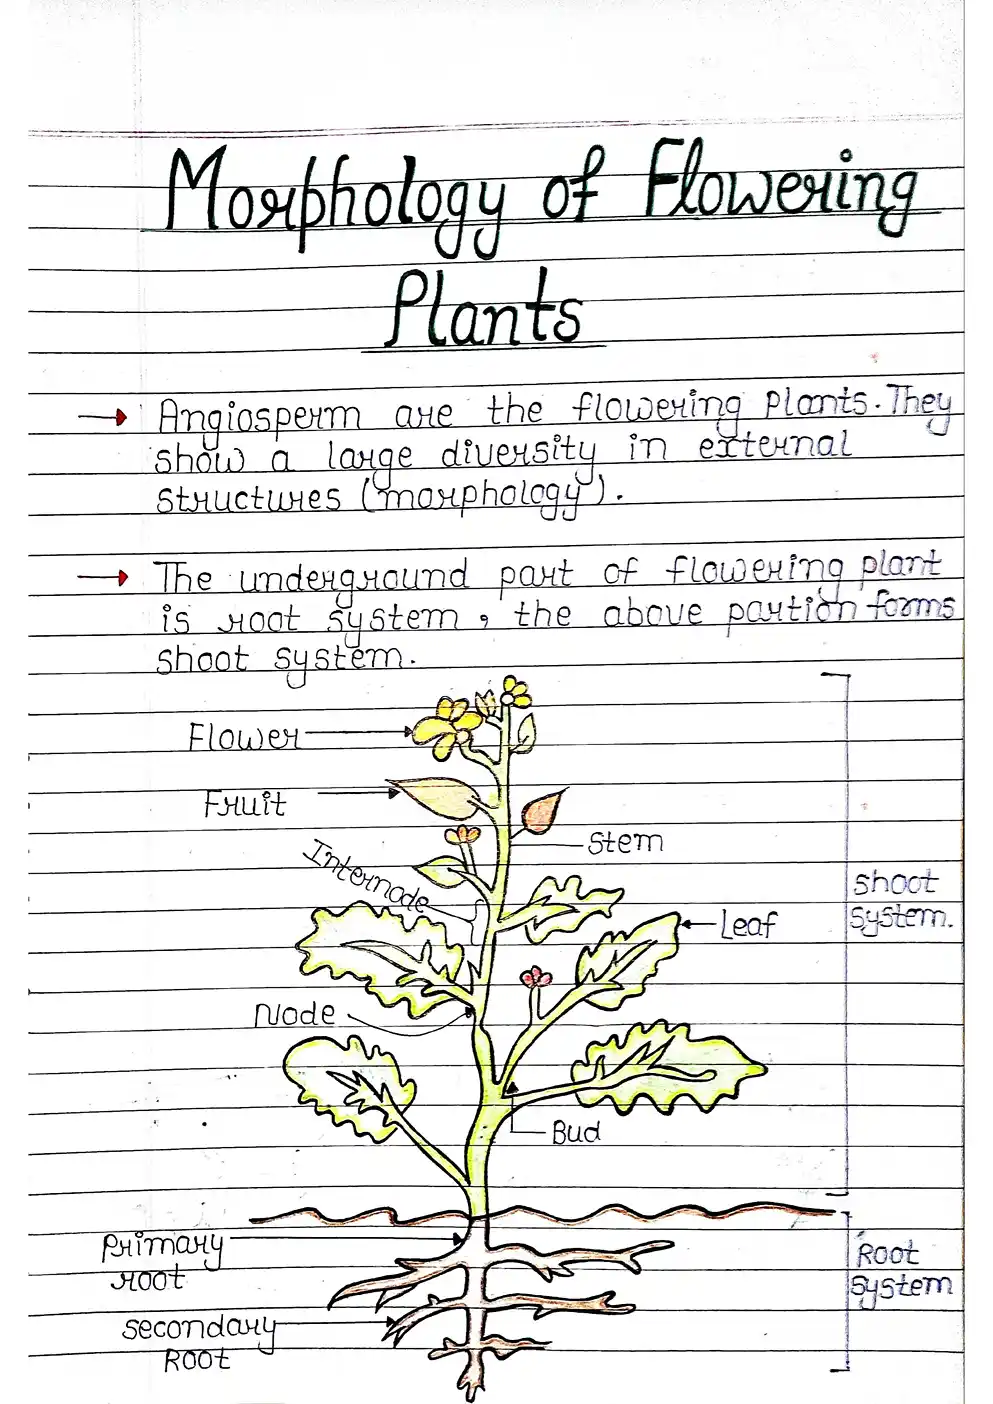 Morphology of Flowering
Plants
→ Angiosperm are the flowering plants. They
show a large diversity in external
structures (morphology).
→ The underground part of flowering plant
is root system, the above partion forms
shoot system.
Flower
Fruit
Stem
Internode
Shoot
system.
Leaf
Node
Bud
Primary
root
Root
system
Secondary
Root